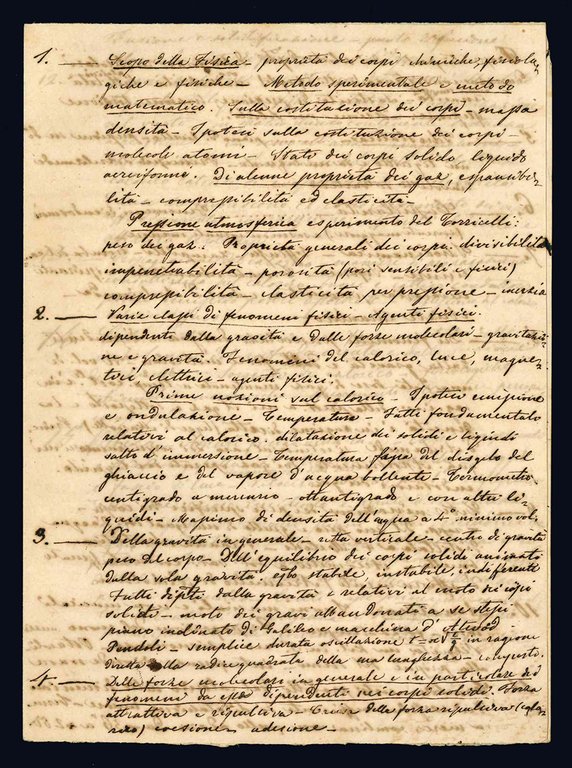 1. — Scopo della Fisica — proprietà dei corpi chimiche, fisiolo-
giche e fisiche — Metodo sperimentale e metodo
matematico. Sulla costituzione dei corpi — massa
densità — Ipotesi sulla costituzione dei corpi —
molecole atomi — Stati dei corpi solido, liquido
aeriforme. Di alcune proprietà dei gaz, espansibi-
lità — compressibilità ed elasticità —
Pressione atmosferica esperimento del Torricelli:
peso dei gaz. Proprietà generali dei corpi: divisibilità
impenetrabilità — porosità (pori sensibili e fisici)
compressibilità — elasticità per pressione — inerzia
2. — Varie classi di fenomeni fisici — Agenti fisici.
dipendenti dalla gravità e dalle forze molecolari — gravitazio-
ne e gravità. Fenomeni del calorico, luce, magne-
tici, elettrici — agenti fisici.
Prime nozioni sul calorico — Ipotesi emissione
e ondulazione — Temperatura — Fatti fondamentali
relativi al calorico. dilatazione dei solidi e liquidi
salto d'immersione — Temperatura fissa del disgelo del
ghiaccio e del vapore d'acqua bollente — Termometro
centigrado a mercurio — ottantigrado e con altri li-
quidi — Massimo di densità dell'acqua a 4° minimo vol.
3. — Della gravità in generale — retta verticale — centro di gravità
peso del corpo Dell'equilibrio dei corpi solidi animati
dalla sola gravità. eqbo stabile, instabile, indifferente
Fatti dipti dalla gravità e relativi al moto dei corpi
solidi — moto dei gravi abbandonati a se stessi
piano inclinato di Galileo e macchina d'Atwood
Pendoli — semplice durata oscillazione t = π√l/g in ragione
diretta della radice quadrata della sua lunghezza — composto.
4. — Delle forze molecolari in generale e in particolare dei
fenomeni da esse dipendenti nei corpi solidi. Forza
attrattiva e ripulsiva — Causa della forza ripulsiva (calo-
rico) coesione adesione —